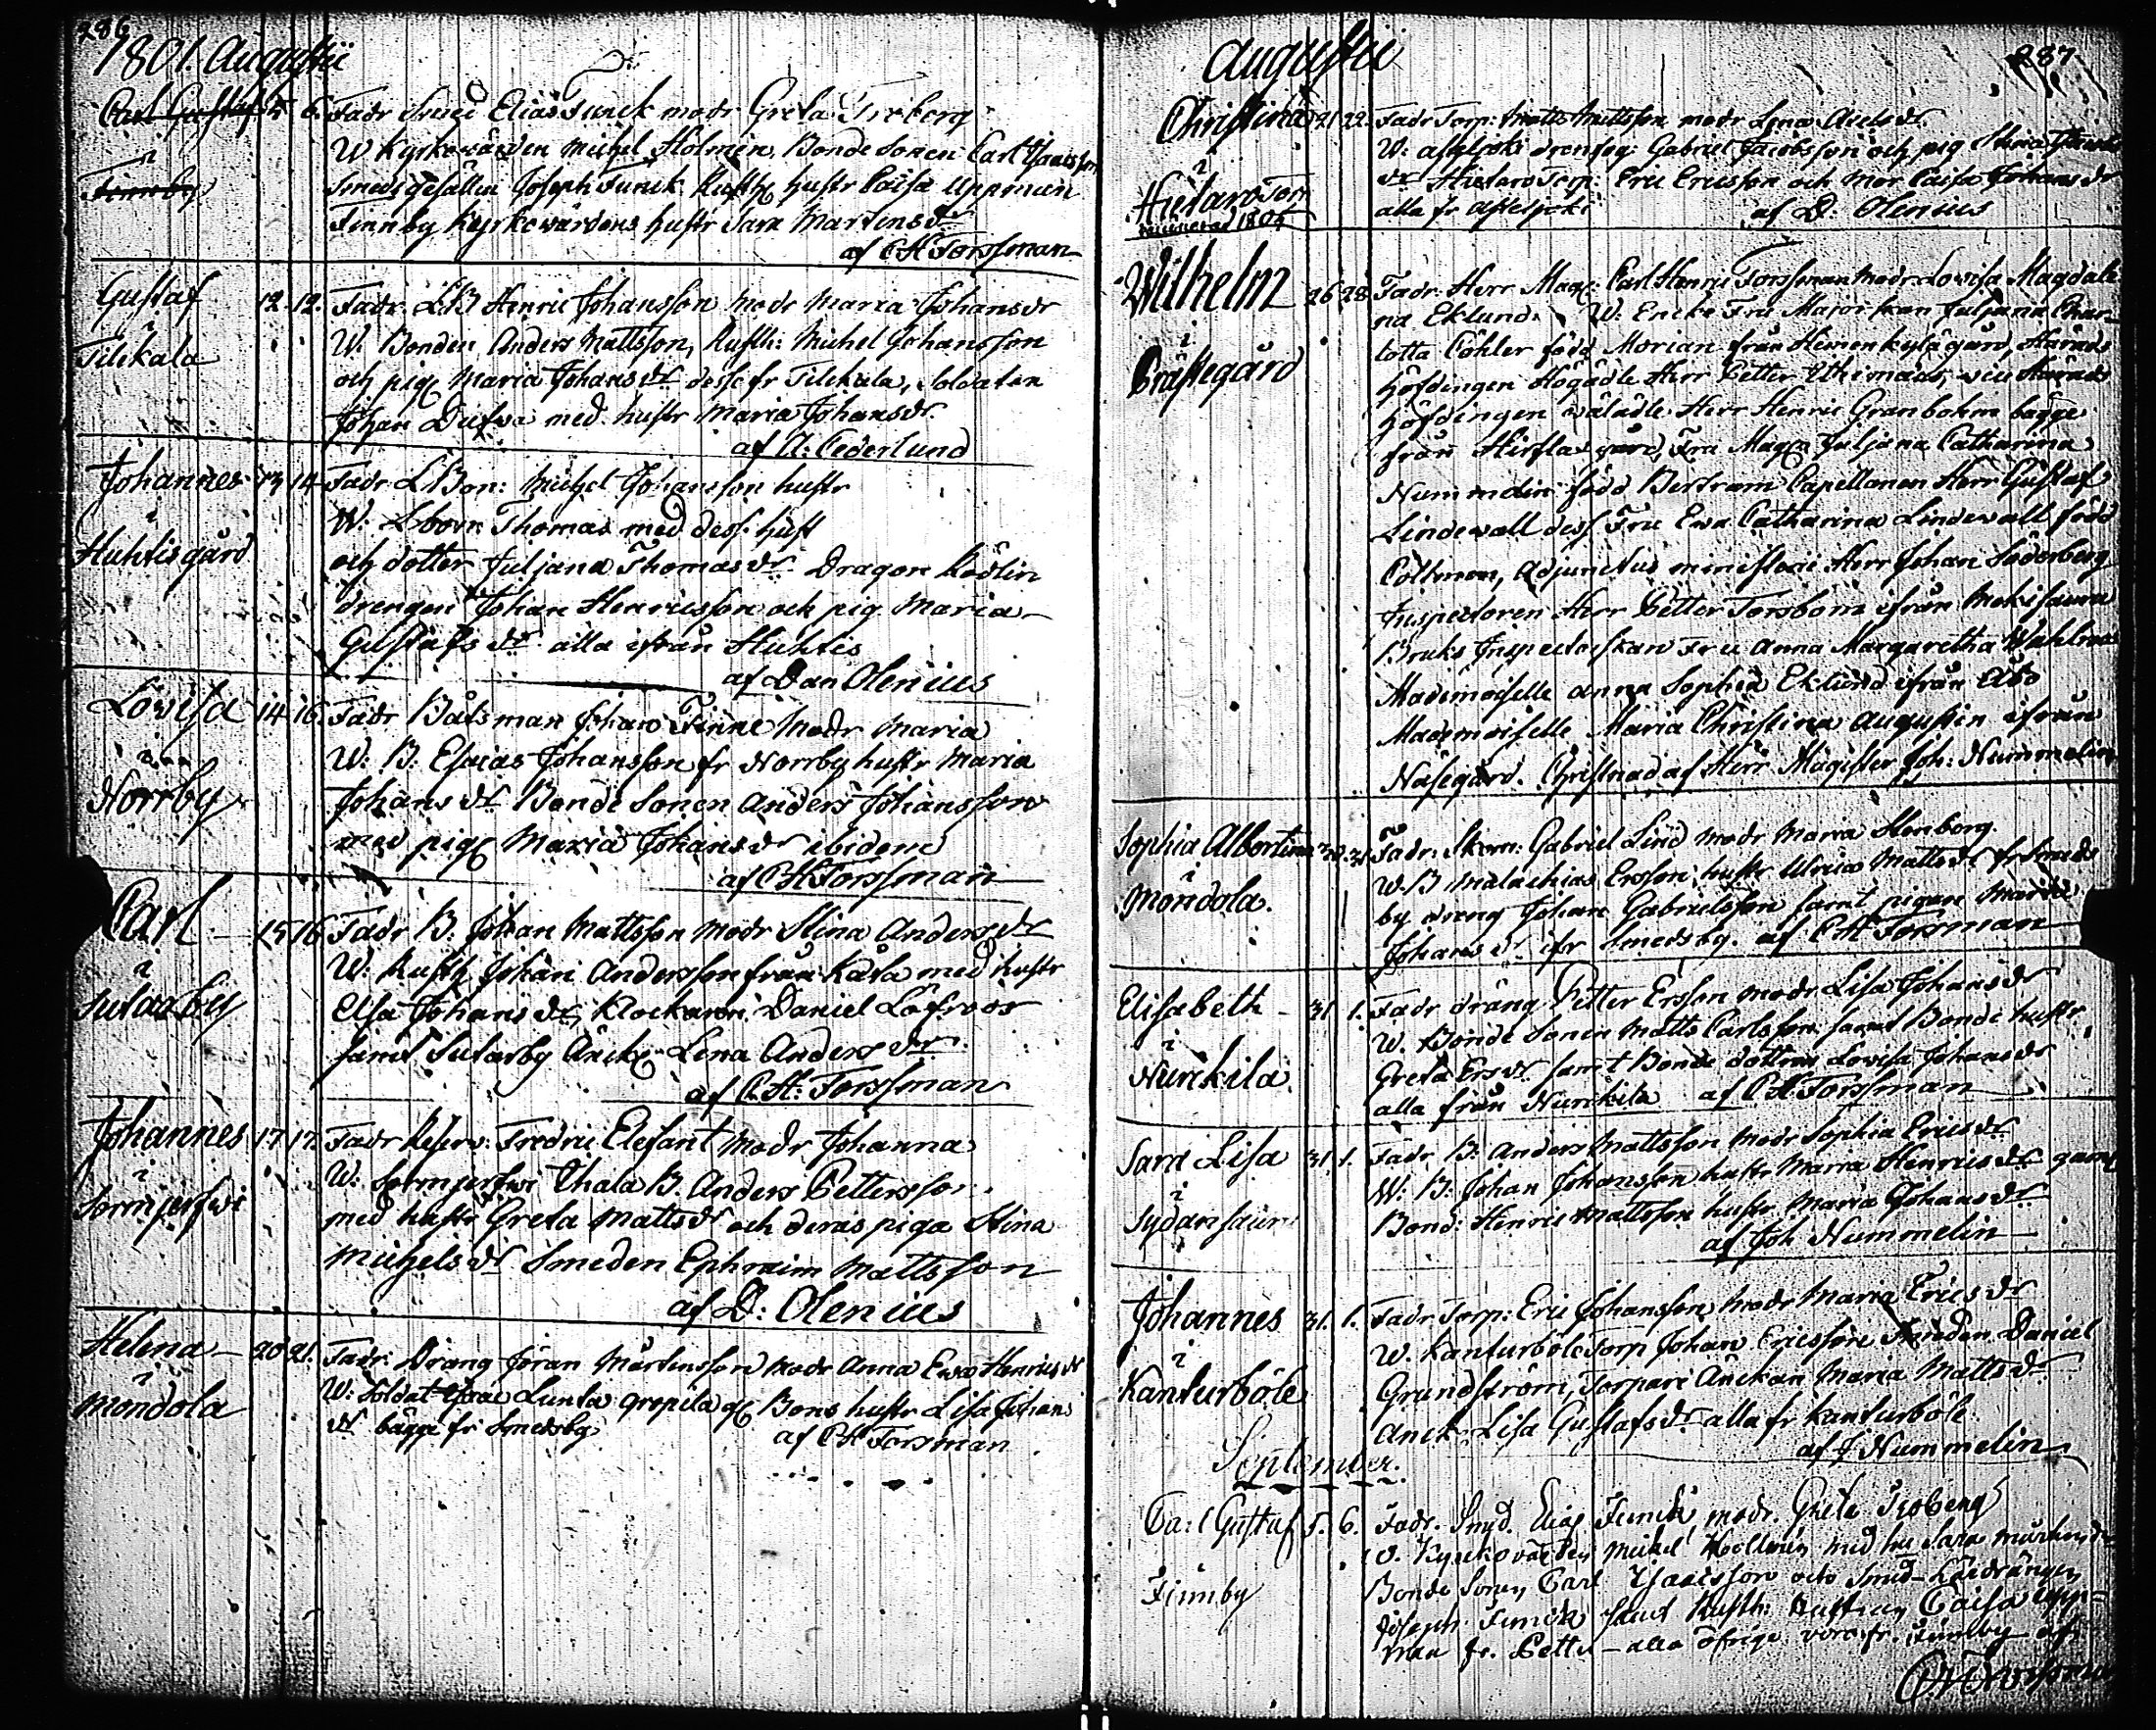 286
1801. Augustii
Carl Gustaf 5 6. Fadr Smed Elias Funck modr Greta Froberg
i W Kyrkovärden Michel Holmén, Bonde Sonen Carl Isaacsson
Finnby Smeds gesällen Joseph Funck Rusth hustr Caisa Uppman
Finnby Kyrkovärdens hustr Sara Mårtens dr
af CH Forssman
Gustaf 12. 12. Fadr. LB Henric Johansson modr Maria Johans dr
i W. Bonden Anders Mattsson, Rusth: Michel Johansson
Tilckala och pig Maria Johans dr desse fr Tilckala, Soldaten
Johan Dufva med hustr Maria Johans dr
af A: Cederlund
Johannes 13 14 Fadr LBon: Michel Johansson hustr
i W. Lbon Thomas med dess hust
Huhtis gård och dotter Juljana Thomas dr Dragon Rödlin
drengen Johan Henricsson och pig Maria
Gustafs dr alla ifrån Huhtis
af Dan Olenius
Lovisa 14 16 Fadr Båtsman Johan Finne Modr Maria
i W. B. Esaias Johansson fr Norrby hustr Maria
Norrby Johans dr Bonde Sonen Anders Johansson
med pig Maria Johans dr ibidem
af CH Forssman
Carl 15 16 Fadr B. Johan Mattsson Modr Stina Anders dr
i W. Rusth Johan Andersson från Karla med hustr
Sutarby Elsa Johans dr, Klockaren Daniel Löfroos
samt Sutarby Änck Lena Anders dr
af C.H. Forssman
Johannes 17 17. Fadr Reserv: Fredric Elefant Modr Johanna
i W: Sormjerfwi Uhala B. Anders Pettersson
Sormjerfwi med hustr Greta Matts dr och deras piga Stina
Michels dr Smeden Ephraim Mattsson
af D: Olenius
Helena 20 21. Fadr. Dräng Jöran Mårtensson Modr Anna Ewa Henrics dr
i W: Soldat Lunta Bons hustr Lisa Johans
Mondola dr bägge fr Smedsby
af CH Forssman
Augustii 287
Christina 21 22. Fadr Torp: Matts Mattsson modr Lena Axels dr
i W: drengen: Gabriel Jacobsson och pig Stina
Hietaro Torp dr Hietaro Torp: Eric Ericsson och mor Caisa Johans dr
1805 alla fr af D: Olenius
Wilhelm 26 28 Fadr: Herr Mag: Carl Henric Forssman Modr Lovisa Magdale
i na Eklund. W: Encke Fru Majorskan Juljana Char-
Prästegård lotta Cöhler född Morian från Heimonkylägård, Härads
höfdingen Högädle Herr Petter Ithimaus, vice Härads
höfdingen wälädle Herr Henric Granbohm bägge
från Fru Mag Juljana Catharina
Nummelin född Bertram Capellanen Herr Gustaf
Lindewall dess Fru Ewa Catharina Lindewall född
Coltman, Adjunctus ministerii Herr Johan Söderberg
Inspectoren Herr Petter Torsbom ifrån Mokisaura
Bruks Inspectorskan Fru Anna Margaretha Wahlroos
Mademoiselle Anna Sophia Eklund ifrån Åbo
Mademoiselle Maria Christina Augustin ifrån
Näsegård. Christnad af Herr Magister Joh: Nummelin
Sophia Albertina Fadr. Gabriel Lind modr Maria Stenborg.
i W. B Malachias Ersson hustr Ulrica Matts dr fr Smeds
Mondola. by dreng Johan Gabrielsson samt pigan Maria
Johans dr ifr Smedsby. af CH Forssman
Elisabeth 31 1. Fadr dräng Petter Ersson modr Lisa Johans dr
i W. Bonde Sonen Matts Carlsson samt Bonde hustr
Nurckila Greta Ers dr samt Bonde dottren Lovisa Johans dr
alla från Nurckila af CH Forssman
Sara Lisa 31. 1. Fadr B: Anders Mattsson modr Sophia Erics dr
i W: B: Johan Johansson hustr Maria Henrics dr
Sydänsaur Bond: Henric Mattsson hustr Maria Johans dr
af Joh Nummelin
Johannes 31. 1. Fadr Torp: Eric Johansson modr Maria Erics dr
i W. Kanturböle Torp Johan Ericsson Smeden Daniel
Kanturböle Grundström, Torpare Änckan Maria Matts dr
Änck: Lisa Gustafs dr alla fr Kanturböle
af J Nummelin
September.
Carl Gustaf 5. 6. Fadr. Smed. Elias Funck modr. Greta Froberg
W. Kyrckovärden Michel Hollmén med hu Sara Mårtens dr
Finnby Bonde Sonen Carl Isaacsson och Smed-Lärdrängen
Joseph Funck samt Rusth: hustrun Caisa Upp=
man fr. Pettu - alla öfrige voro fr. Finnby af
CH Forssman